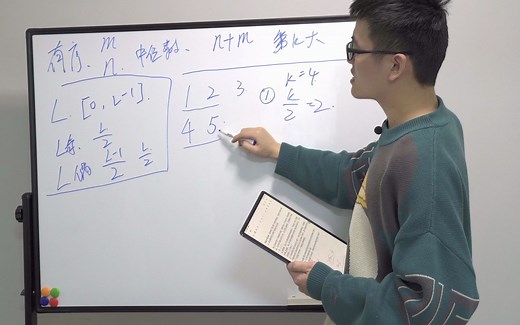 有序、 m 中位数、 n+m 第k大
n
L. [0, L-1].
L奇. L/2
L偶 L-1/2 L/2
1 2 3
4 5.
① k=4
k/2=2.